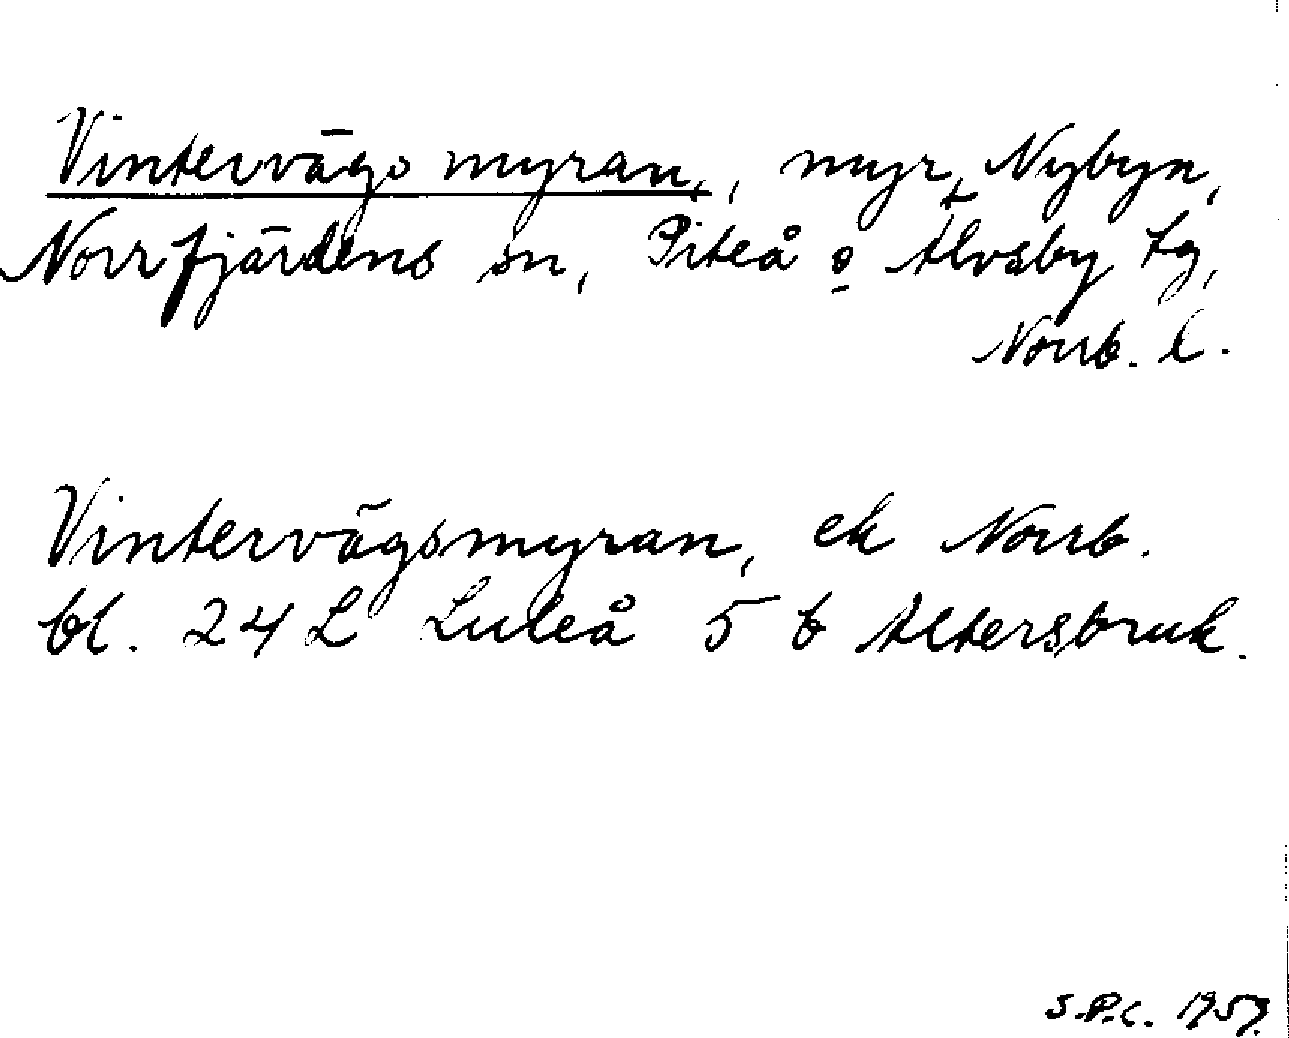 Vintervägsmyran, myr, Nybyn,
Norrfjärdens sn, Piteå o Älvsby tg,
Norrb. l.
Vintervägsmyran, ek Norrb.
bl. 24 L Luleå 5 b Altersbruk.
S.P.C. 1957.